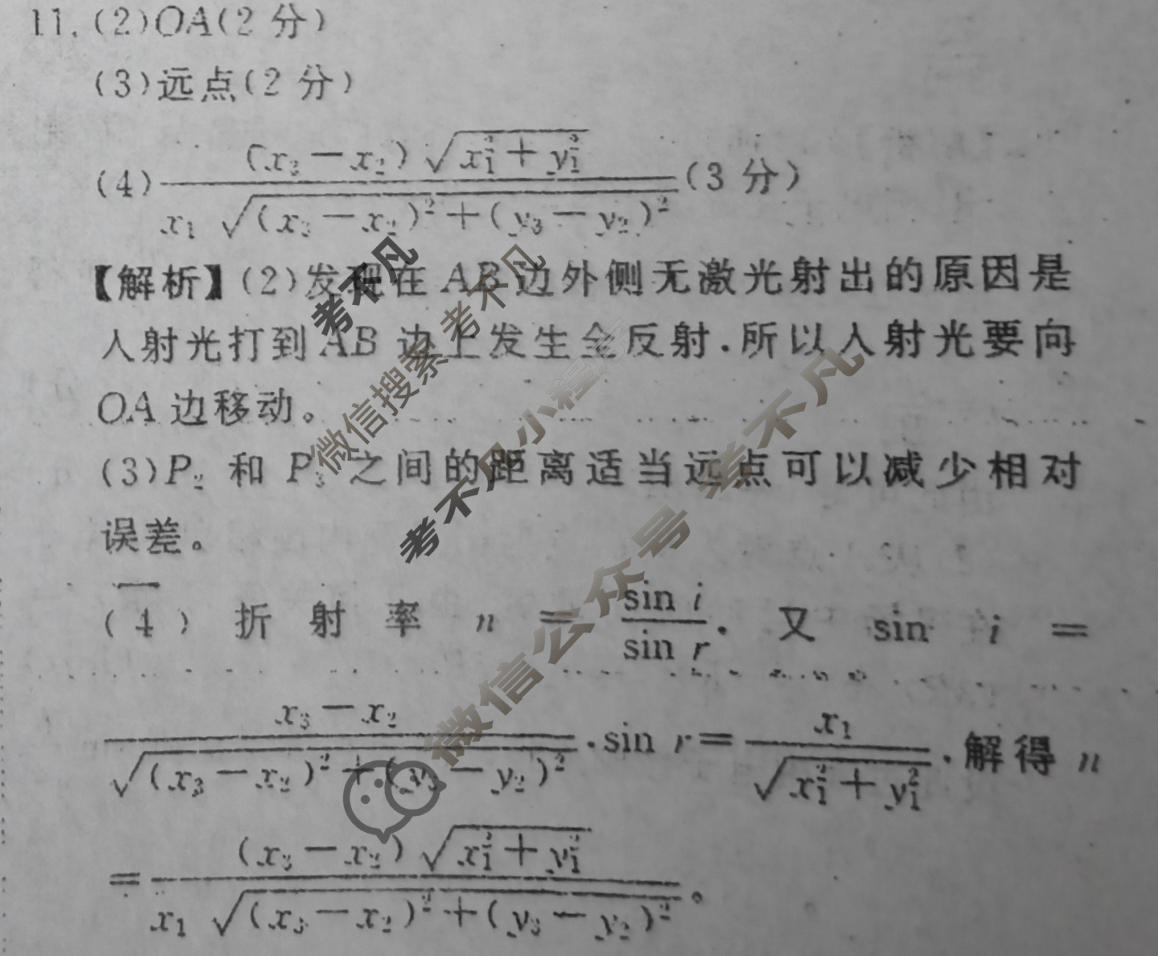 11.(2)OA(2 分)
(3)远点(2 分)
(4)\frac{(x_3-x_2)\sqrt{x_1^2+y_1^2}}{x_1\sqrt{(x_3-x_2)^2+(y_3-y_2)^2}}(3 分)
【解析】(2)发现在 AB 边外侧无激光射出的原因是
入射光打到 AB 边上发生全反射,所以入射光要向
OA 边移动。
(3)P_2 和 P_3 之间的距离适当远点可以减少相对
误差。
(4)折射率 n = \frac{\sin i}{\sin r},又 sin i =
\frac{x_3-x_2}{\sqrt{(x_3-x_2)^2+(y_3-y_2)^2}},sin r=\frac{x_1}{\sqrt{x_1^2+y_1^2}},解得 n
=\frac{(x_3-x_2)\sqrt{x_1^2+y_1^2}}{x_1\sqrt{(x_3-x_2)^2+(y_3-y_2)^2}}。
考不凡
微信搜索考不凡
考不凡小程序
微信公众号 考不凡